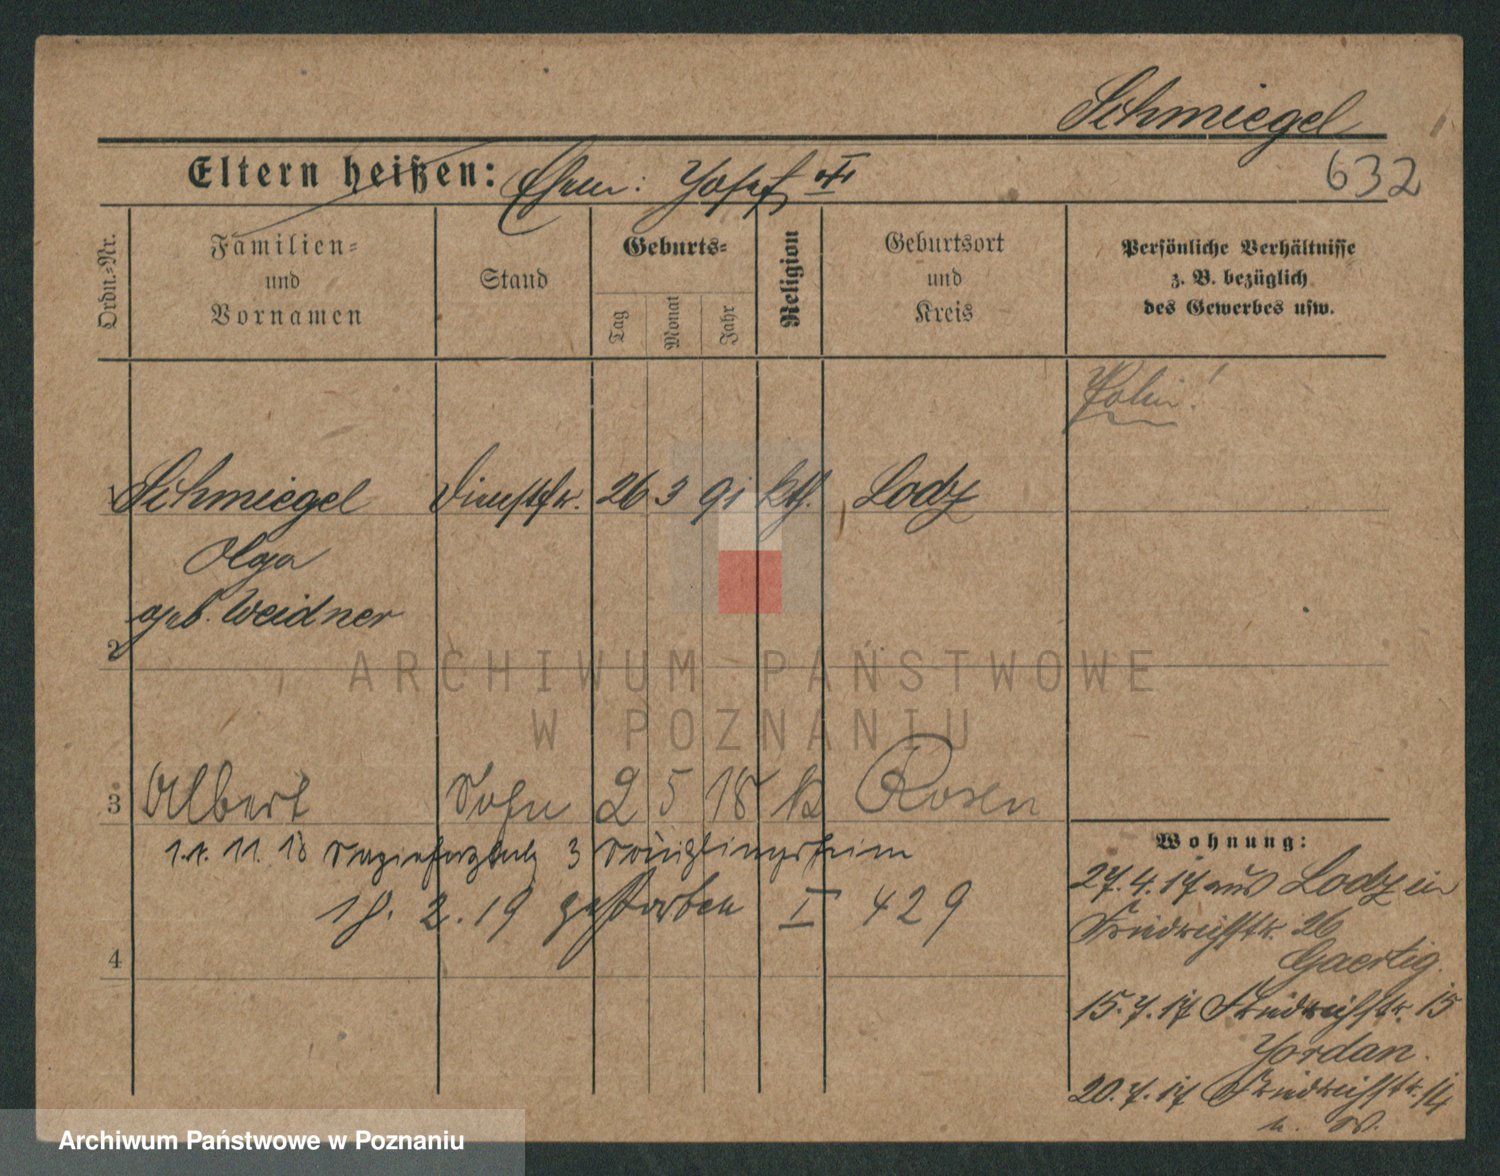 Schmiegel
632
Eltern heißen: Ehem: Josef
Ordn.-Nr.
Familien-
und
Vornamen
Stand
Geburts-
Tag
Monat
Jahr
Religion
Geburtsort
und
Kreis
Persönliche Verhältnisse
z. B. bezüglich
des Gewerbes usw.
Polin!
1 Schmiegel 26 3 91 kth. Lodz
Olga
geb. Weidner
2
ARCHIWUM PAŃSTWOWE
W POZNANIU
3 Albert Sohn 2 5 18 k Posen
11. 18 3 Säuglingsheim
18. 2. 19 gestorben I 429
4
Wohnung:
27. 4. 17 aus Lodz in
Friedrichstr. 26
Gaertig.
15. 7. 17 Friedrichstr. 15
Jordan.
20. 7. 17 Friedrichstr. 14
Archiwum Państwowe w Poznaniu